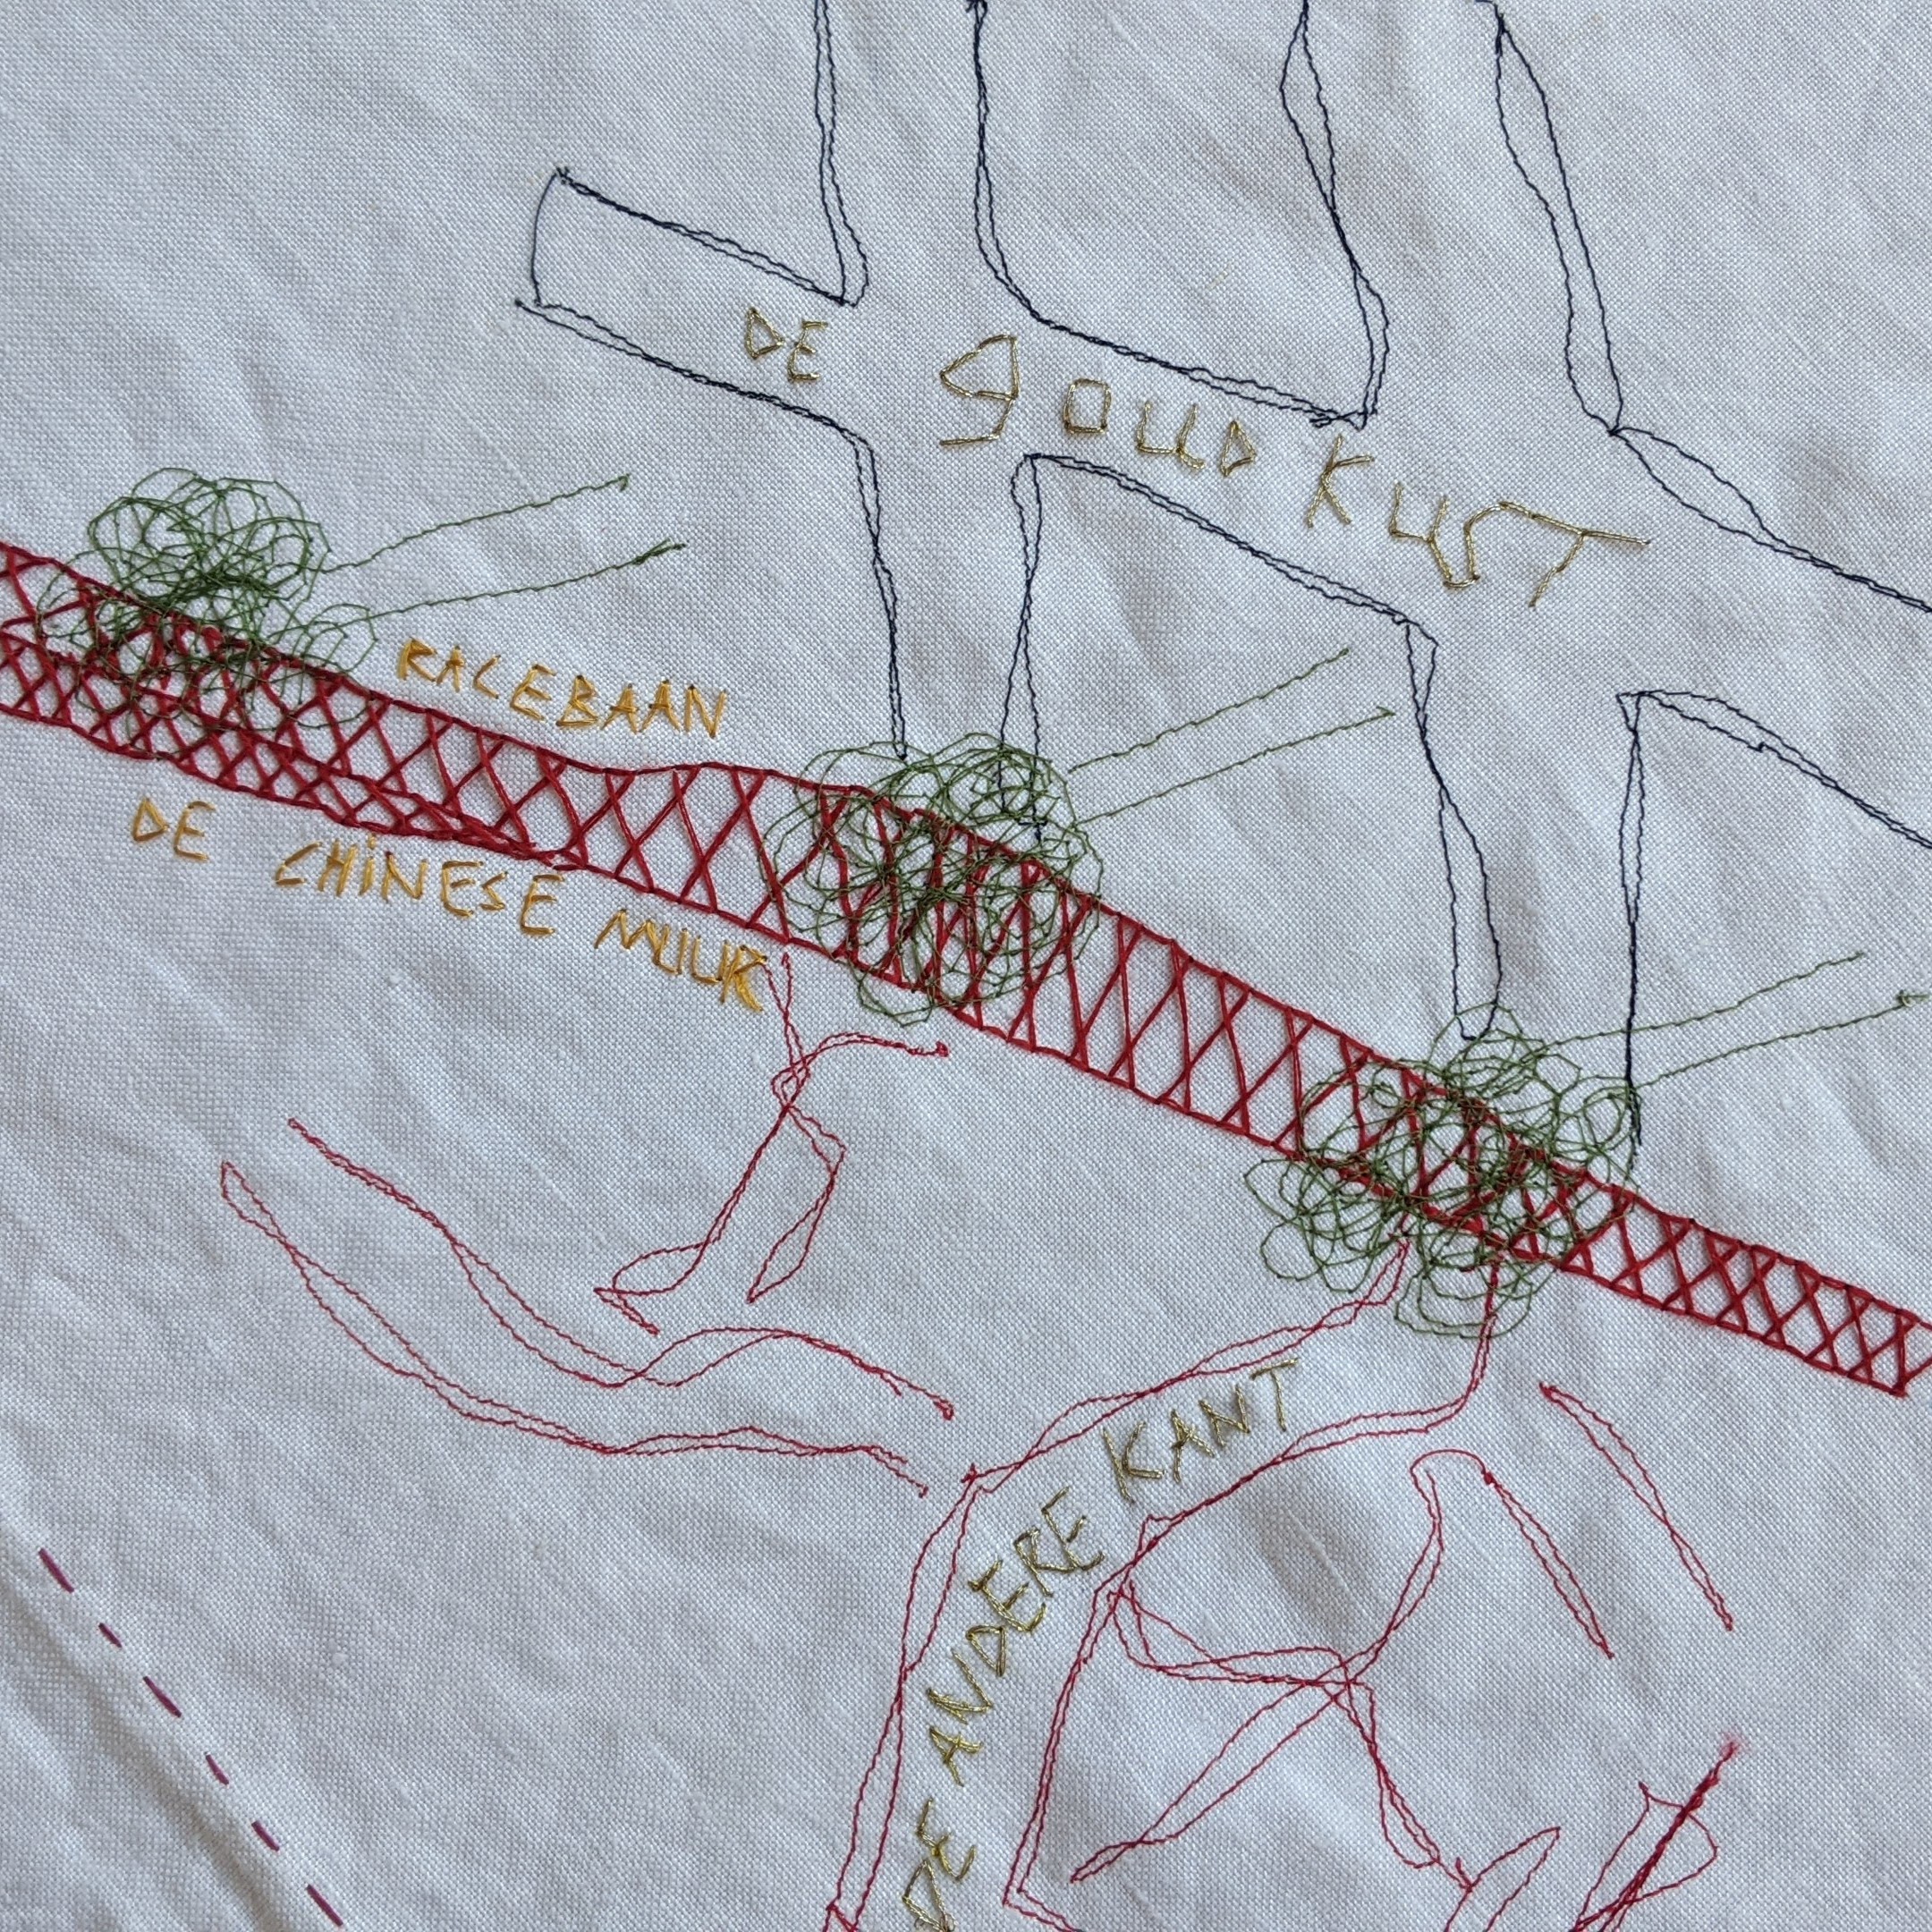 DE GOUD KUST
RACEBAAN
DE CHINESE MUUR
DE ANDERE KANT